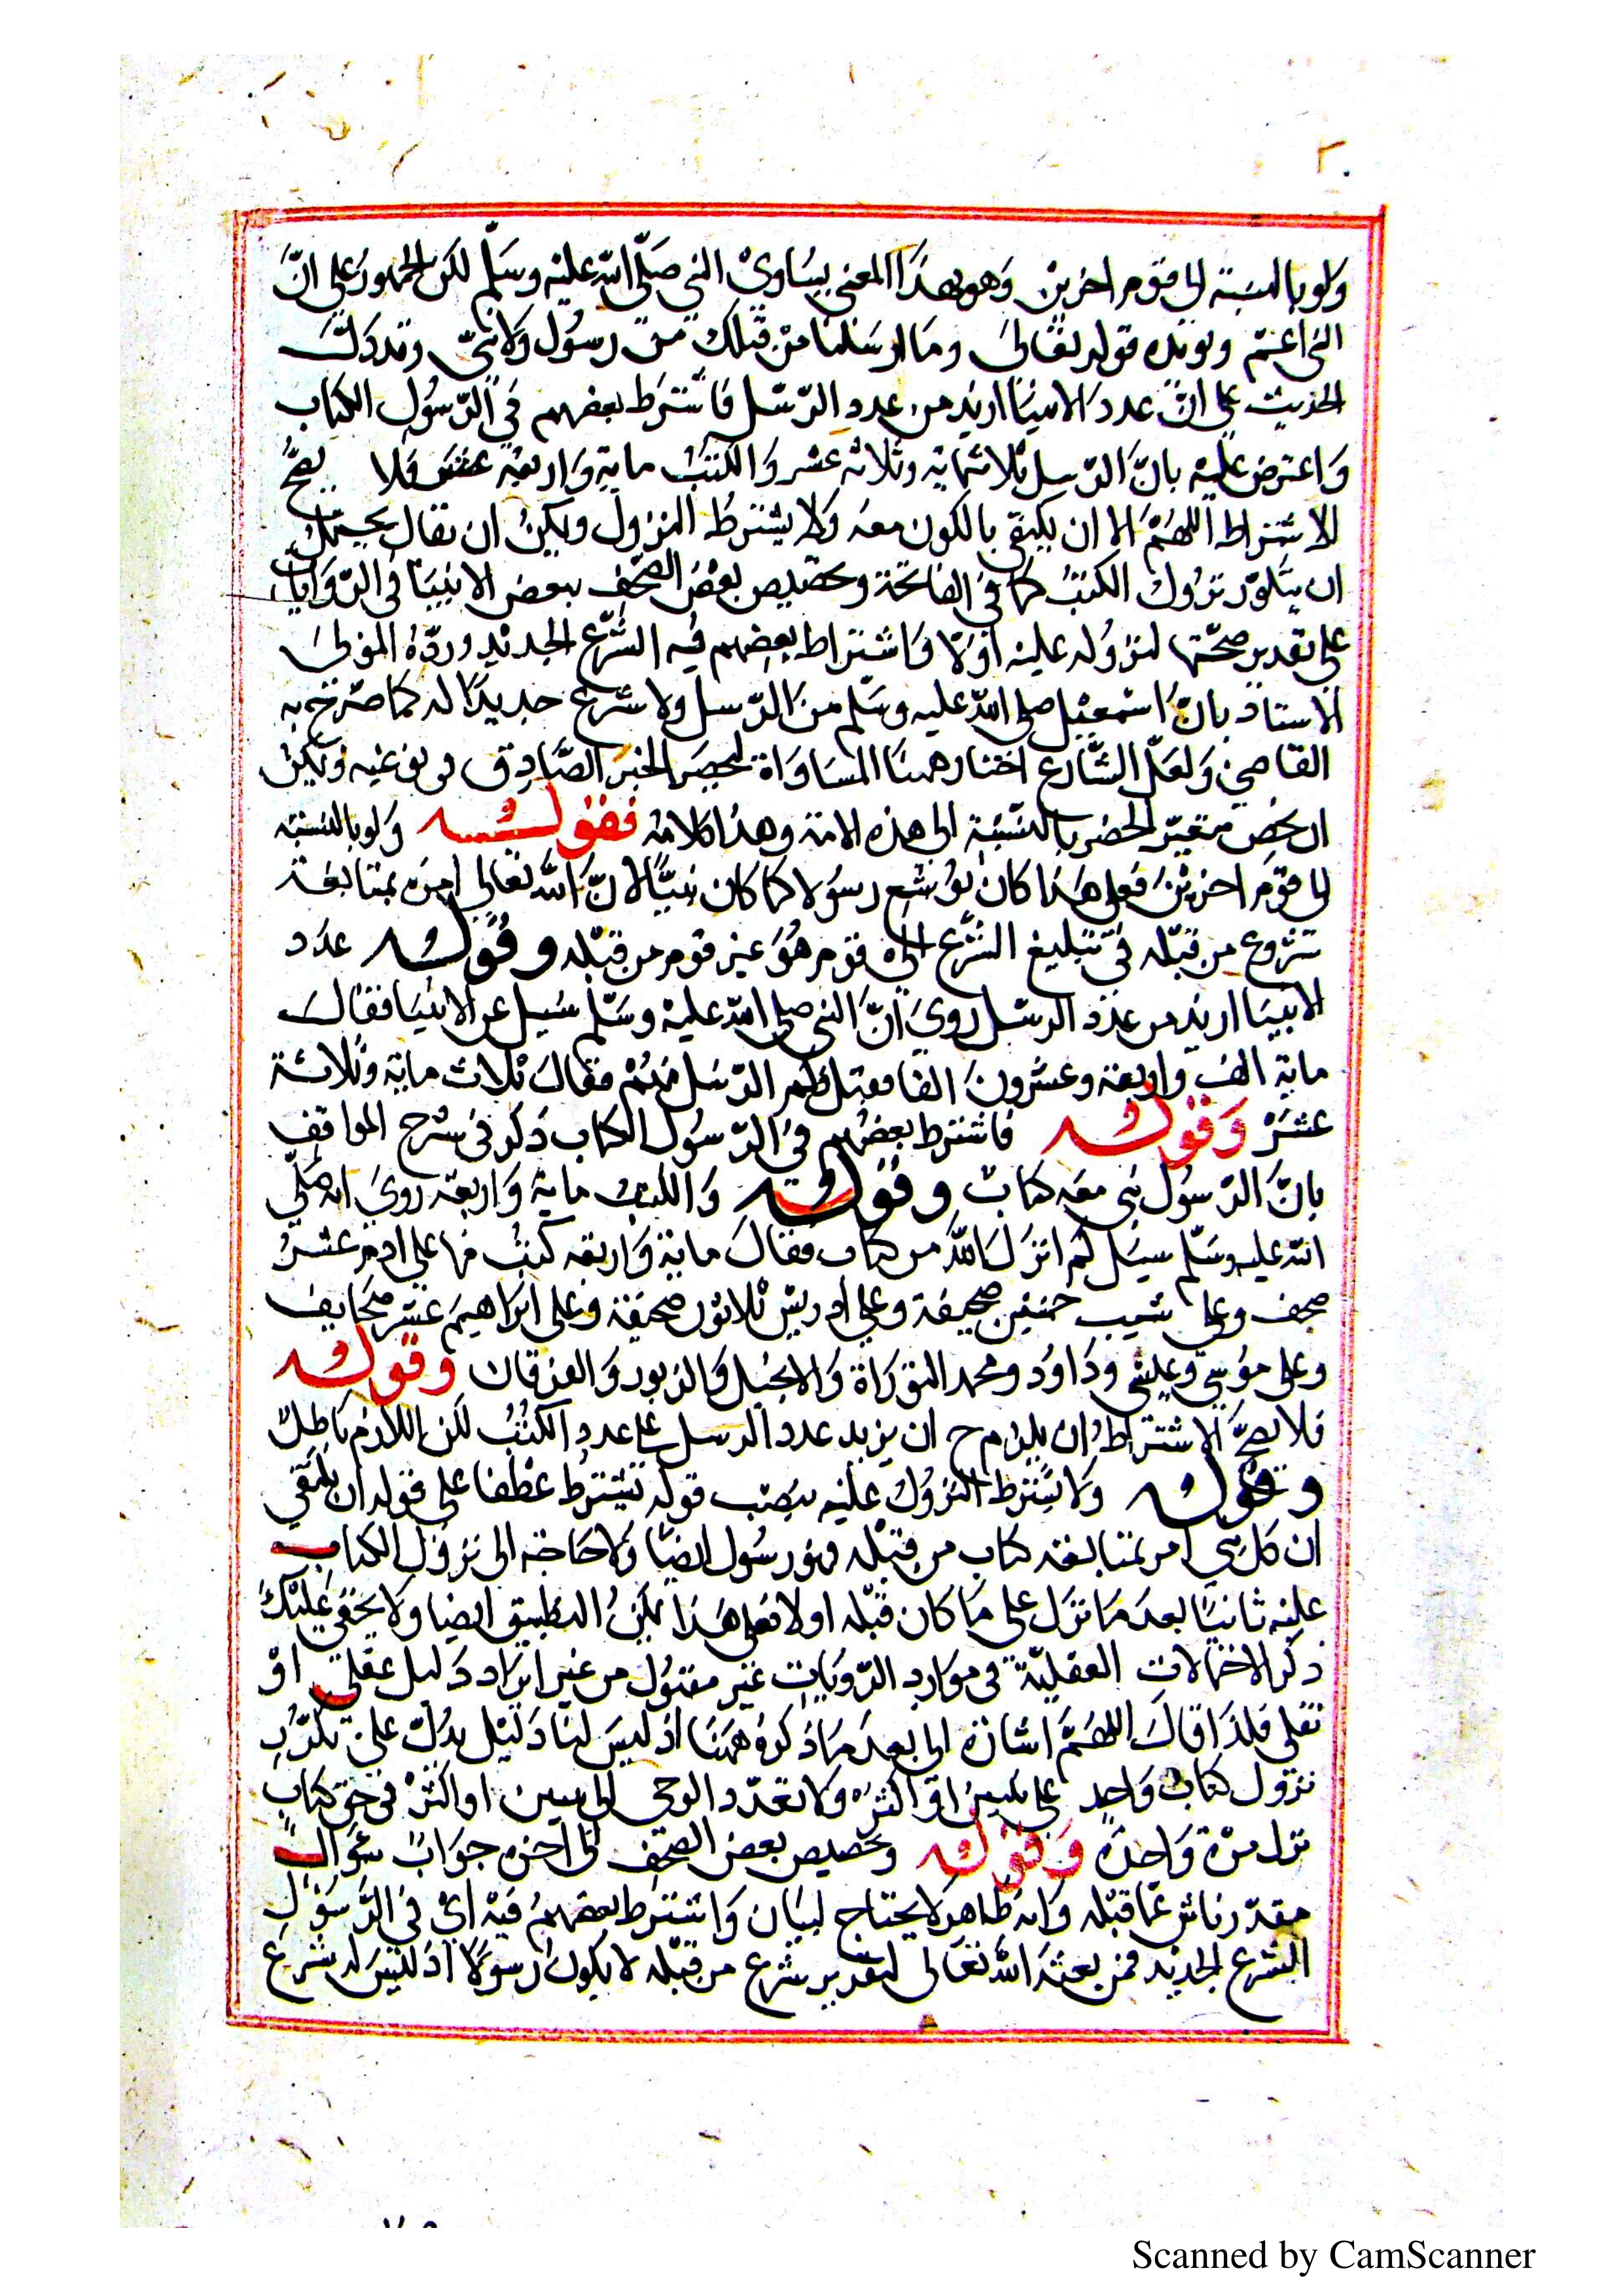 ولو بالنسبة الى قوم اخرين وهو بهذا المعنى يساوي النبي صلى الله عليه وسلم لكن الجمهور على ان
النبي اعتم ويويده قوله تعالى وما ارسلنا من قبلك من رسول ولا نبي وقد دل
الحديث على ان عدد الانبيا ازيد من عدد الرسل فاشترط بعضهم في الرسول الكتاب
واعترض عليه بان الرسل ثلاثماية وثلاثه عشر والكتب ماية واربعة عشر فلا يصح
الاشتراط اللهم الا ان يكتفي بالكون معه ولا يشترط النزول ويمكن ان يقال يحتمل
ان يتكرر نزول الكتب كما في الفاتحة وتخصيص بعض الصحف ببعض الانبيا في الروايات
على تقدير صحتها لنزوله عليه اولا واشتراط بعضهم فيه الشرع الجديد ورده المولى
الاستاد بان اسمعيل صلى الله عليه وسلم من الرسل ولا شرع جديدا له كما صرح به
القاضي ولعل الشارع اختار ههنا المساواة ليحصر الخبر الصادق في نوعيه ويمكن
ان يخص يعتبر الحصر بالنسبة الى هذه الامة وهذا كلامه فقوله ولو بالنسبة
الى قوم اخرين فعلى هذا كان يوشع رسولا كما كان نبيا لان الله تعالى امره بمتابعة
شروع من قبله في تبليغ الشرع الى قوم هو غير قوم من قبله وقوله عدد
الانبيا ازيد من عدد الرسل روي ان النبي صلى الله عليه وسلم سيل عن الانبيا فقال
ماية الف واربعة وعشرون الفا فقيل كم الرسل منهم فقال ثلاث ماية وثلاثة
عشر وقوله فاشترط بعضهم في الرسول الكتاب ذكر في شرح المواقف
بان الرسول نبي معه كتاب وقوله والكتب ماية واربعة روي انه صلى
الله عليه وسلم سيل كم انزل الله من كتاب فقال ماية واربعه كتب منها على ادم عشر
صحف وعلى شيب خمسين صحيفة وعلى ادريس ثلاثون صحيفة وعلى ابراهيم عشر صحايف
وعلى موسى وعيسى وداود ومحمد التوراة والانجيل والزبور والفرقان وقوله
فلا يصح الاشتراط ان يلزم ح ان يزيد عدد الرسل على عدد الكتب لكن اللازم باطل
وقوله ولا يشترط النزول عليه بنصب قوله يشترط عطفا على قوله ان يكتفي
ان كل نبي امر بمتابعة كتاب من قبله فهو رسول ايضا ولا حاجة الى نزول الكتاب
عليه ثانيا بعد ما نزل على ما كان قبله اولا فعلى هذا يمكن التطبيق ايضا ولا يخفى عليك
ذكر الاحتمالات العقلية في موارد الرويات غير مقبول من غير ايراد دليل عقلي او
نقلي فلذا قال اللهم اشارة الى بعد ما ذكره ههنا اذ ليس لنا دليل يدل على تكرر
نزول كتاب واحد على نبيين او اكثر ولا تعدد الوحي الى نبيين او اكثر في حق كتاب
نزل مرة واحدة وقوله وتخصيص بعض الصحف الى اخره جواب سوال
مقدر ناش عما قبله وانه ظاهر لا يحتاج لبيان واشترط بعضهم فيه اي في الرسول
الشرع الجديد فمن بعثه الله تعالى لتقدير شرع من قبله لا يكون رسولا اذ ليس له شرع
Scanned by CamScanner